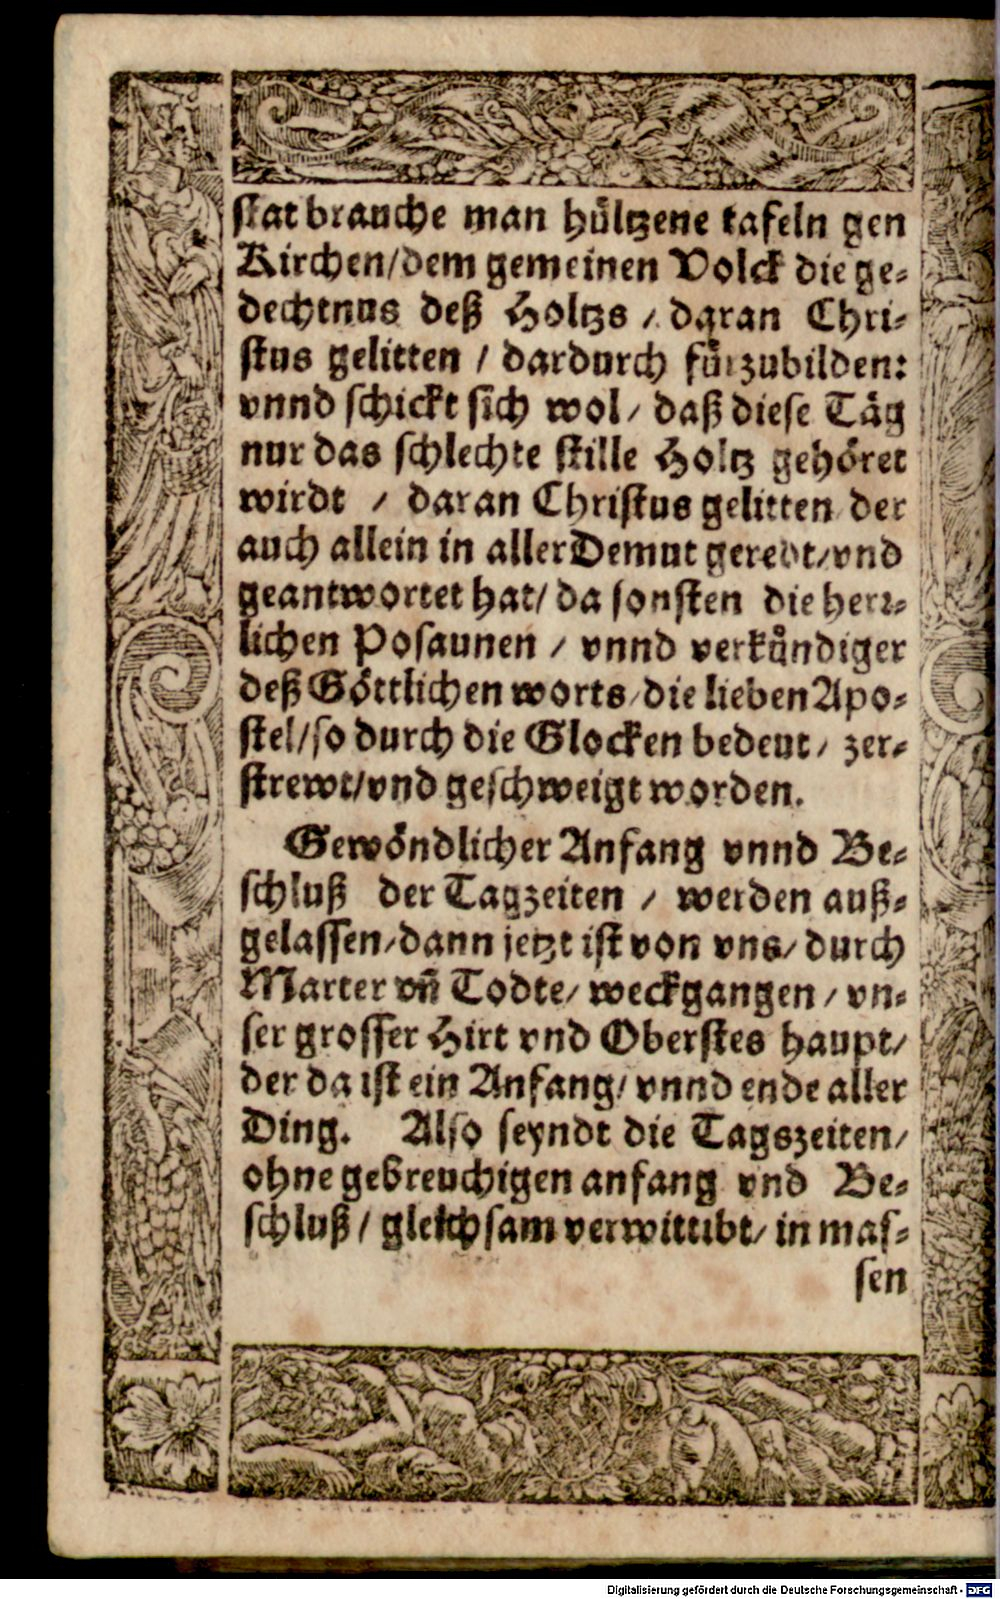 stat brauche man hůltzene tafeln gen
Kirchen/dem gemeinen Volck die ge-
dechtnus deß Holtzs / daran Chri-
stus gelitten / dardurch fůrzubilden:
vnnd schickt sich wol/ daß diese Tåg
nur das schlechte stille Holtz gehöret
wirdt / daran Christus gelitten der
auch allein in aller Demut geredt/vnd
geantwortet hat/ da sonsten die herr-
lichen Posaunen / vnnd verkůndiger
deß Göttlichen worts/die lieben Apo-
stel/so durch die Glocken bedeut/ zer-
strewt/vnd geschweigt worden.
Gewöndlicher Anfang vnnd Be-
schluß der Tagzeiten / werden auß-
gelassen/dann jetzt ist von vns/ durch
Marter vñ Todte/ weckgangen/ vn-
ser grosser Hirt vnd Oberstes haupt/
der da ist ein Anfang/ vnnd ende aller
Ding. Also seyndt die Tagszeiten/
ohne gebreuchigen anfang vnd Be-
schluß/ gleichsam verwittibt/ in mas-
sen
Digitalisierung gefördert durch die Deutsche Forschungsgemeinschaft - DFG